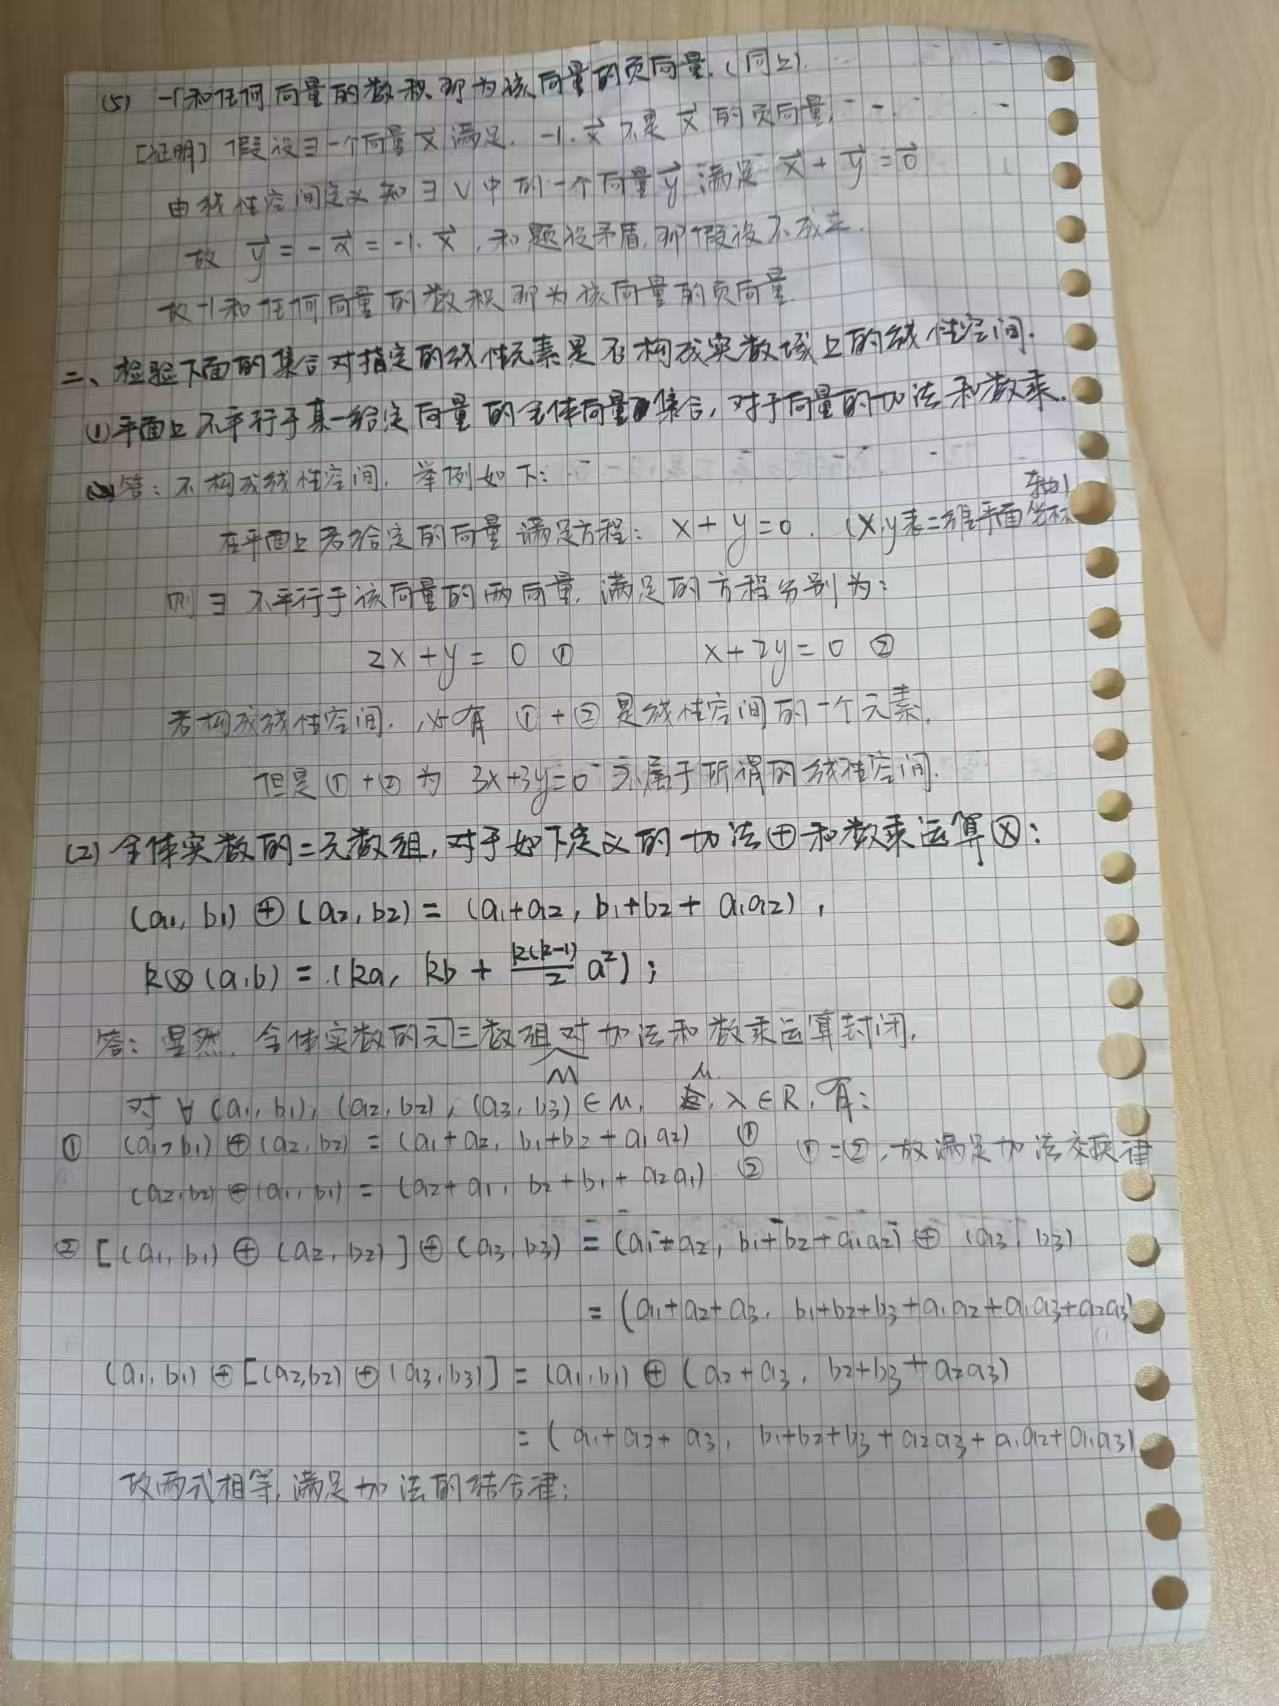 (5) -1和任何向量的数积即为该向量的负向量.(同上).
[证明] 假设∃一个向量 x⃗ 满足. -1·x⃗ 不是 x⃗ 的负向量.
由线性空间定义知 ∃ V中的一个向量 y⃗ 满足 x⃗ + y⃗ = 0⃗
故 y⃗ = -x⃗ = -1·x⃗, 和题设矛盾, 即假设不成立.
故-1和任何向量的数积即为该向量的负向量
二、检验下面的集合对指定的线性元素是否构成实数域上的线性空间.
(1)平面上不平行于某一给定向量的全体向量集合, 对于向量的加法和数乘.
答: 不构成线性空间, 举例如下:
在平面上若给定的向量满足方程: x+y=0. (x,y表二维平面坐标轴)
则∃不平行于该向量的两向量, 满足的方程分别为:
2x+y=0 ① x+2y=0 ②
若构成线性空间, 必有 ①+② 是线性空间的一个元素.
但是①+②为 3x+3y=0 不属于所得的线性空间.
(2) 全体实数的二元数组, 对于如下定义的加法⊕和数乘运算⊗:
(a₁, b₁) ⊕ (a₂, b₂) = (a₁+a₂, b₁+b₂ + a₁a₂),
k⊗(a,b) = (ka, kb + k(k-1)/2 a²);
答: 显然, 全体实数的元二数组对加法和数乘运算封闭.
M
对∀(a₁, b₁), (a₂, b₂), (a₃, b₃) ∈ M, μ, λ∈R, 有:
① (a₁, b₁) ⊕ (a₂, b₂) = (a₁+a₂, b₁+b₂+a₁a₂) ① ①=②, 故满足加法交换律
(a₂, b₂) ⊕ (a₁, b₁) = (a₂+a₁, b₂+b₁+a₂a₁) ②
② [(a₁, b₁) ⊕ (a₂, b₂)] ⊕ (a₃, b₃) = (a₁+a₂, b₁+b₂+a₁a₂) ⊕ (a₃, b₃)
= (a₁+a₂+a₃, b₁+b₂+b₃+a₁a₂+a₁a₃+a₂a₃)
(a₁, b₁) ⊕ [(a₂,b₂) ⊕ (a₃,b₃)] = (a₁,b₁) ⊕ (a₂+a₃, b₂+b₃+a₂a₃)
= (a₁+a₂+a₃, b₁+b₂+b₃+a₂a₃+a₁a₂+a₁a₃)
故两式相等, 满足加法的结合律;